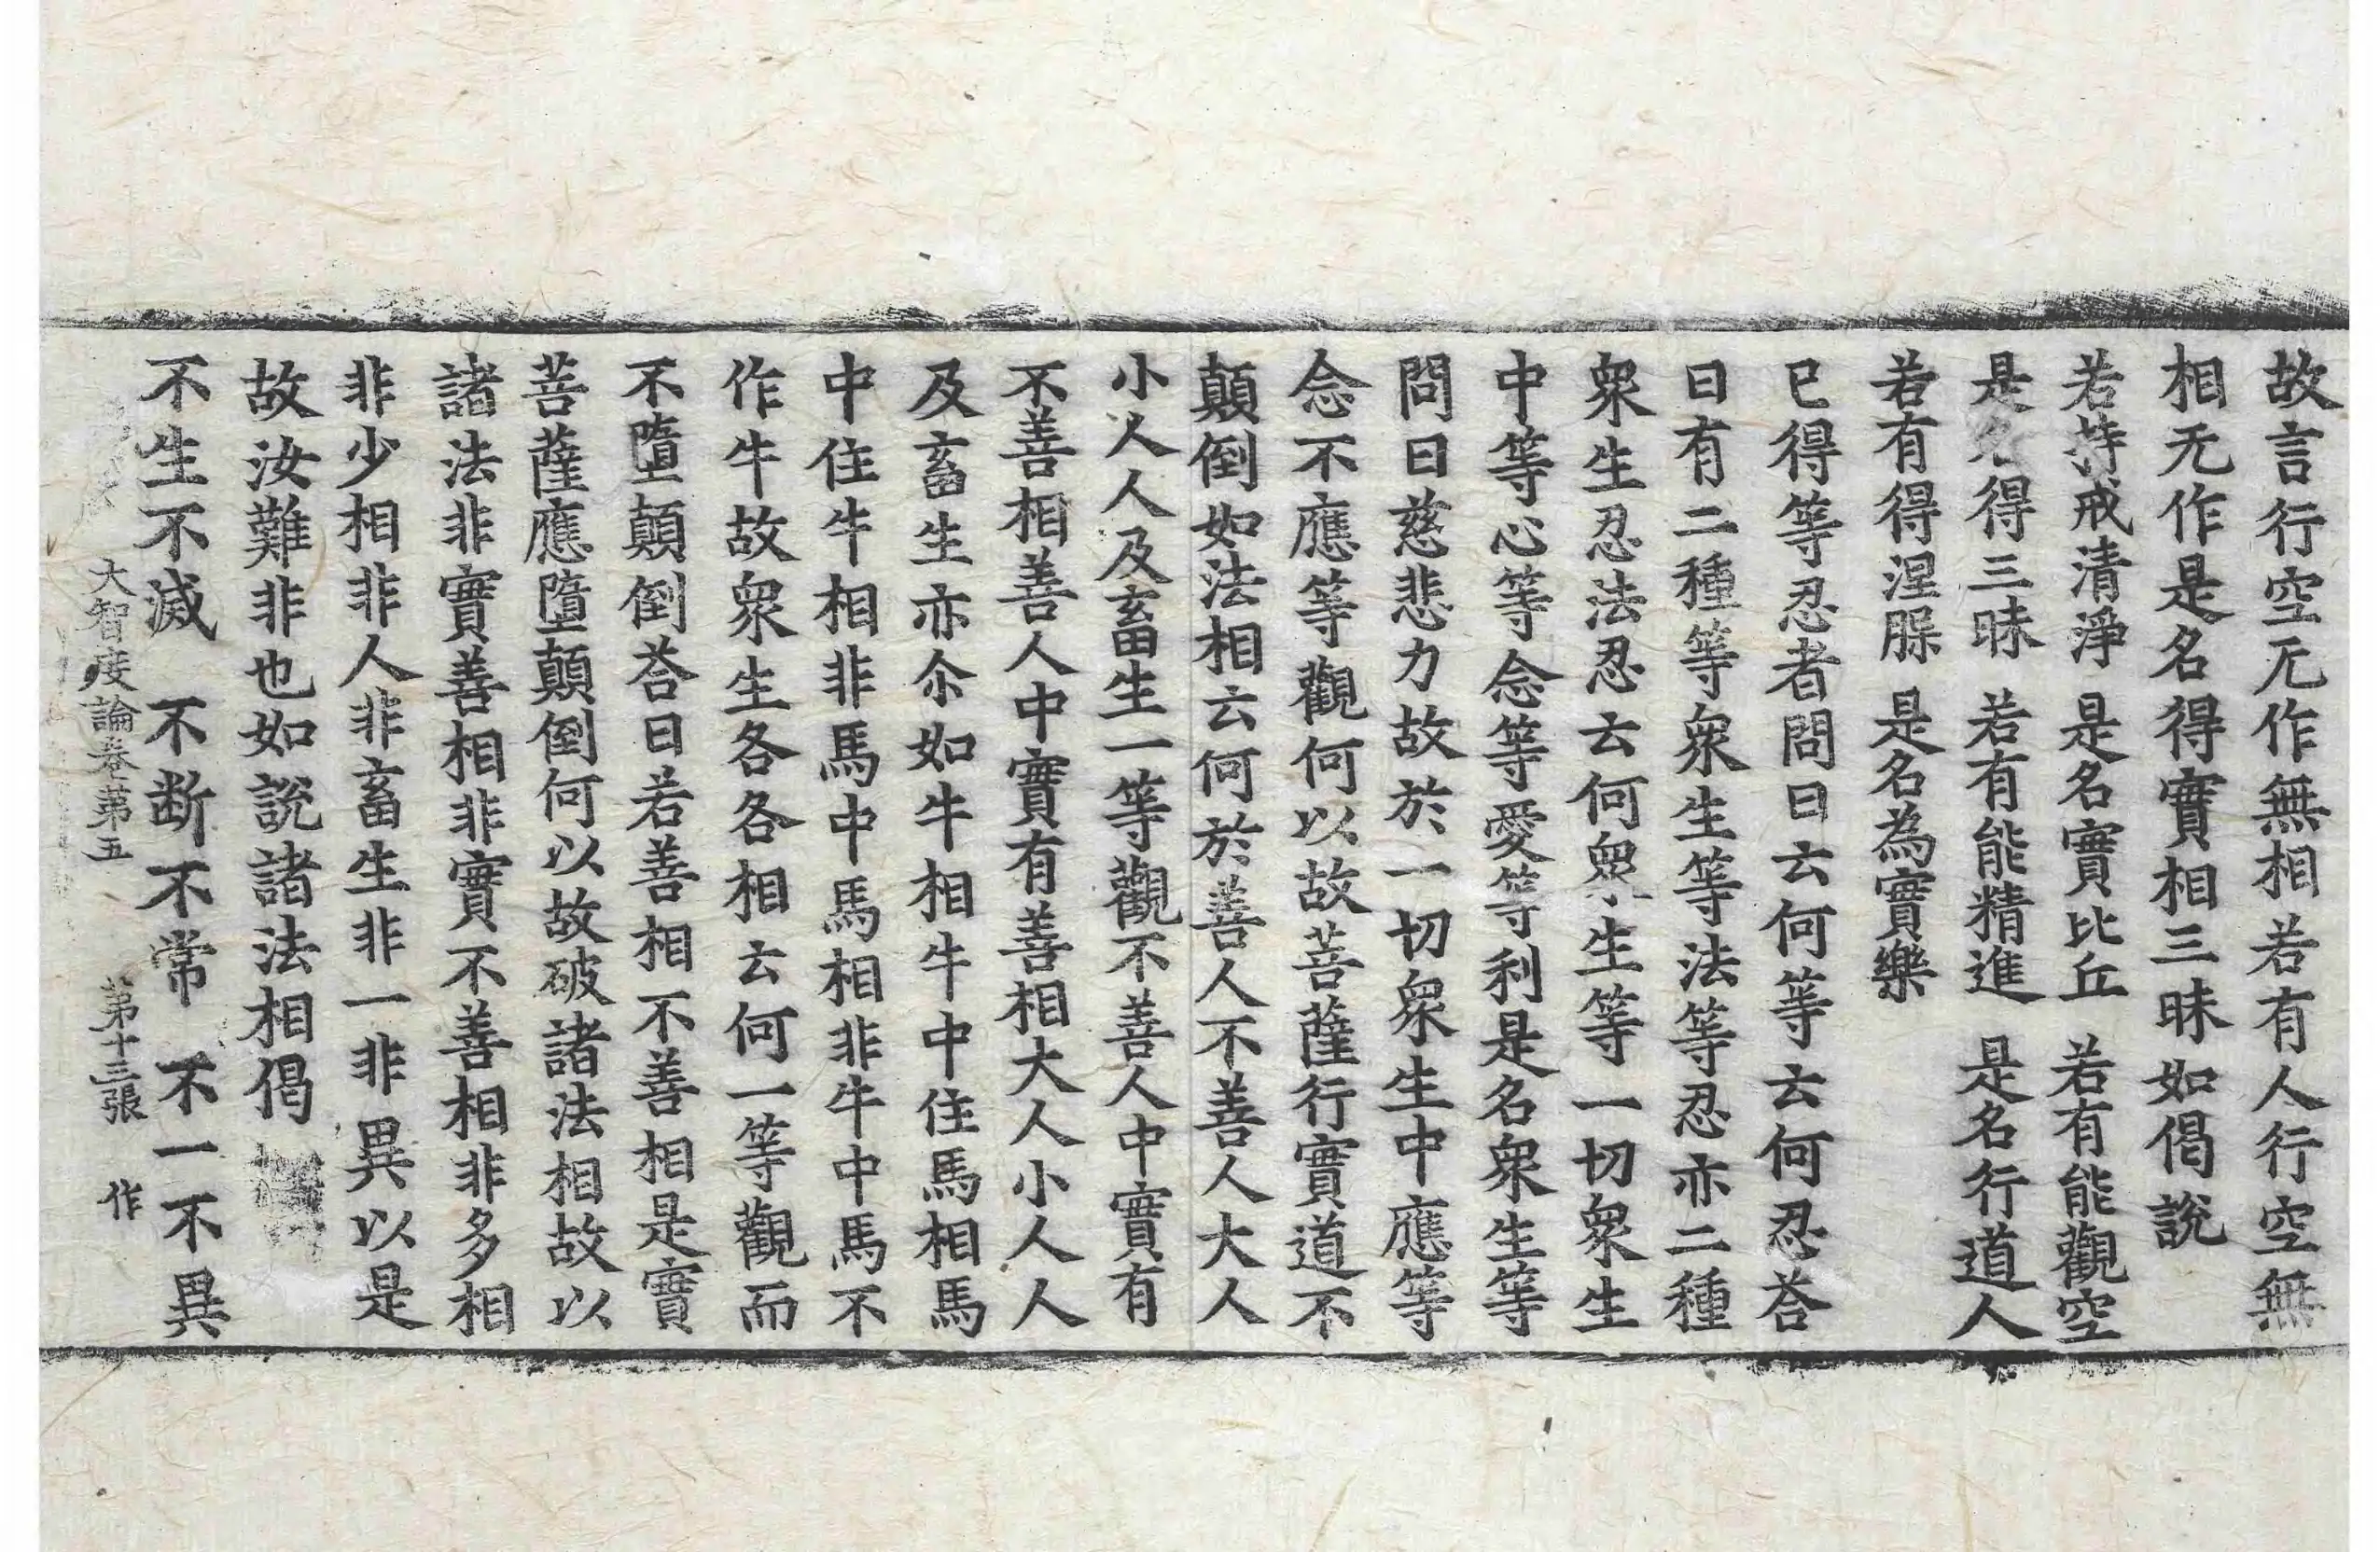 故言行空无作無相若有人行空無
相无作是名得實相三昧如偈說
若持戒清淨　是名實比丘　若有能觀空
是名得三昧　若有能精進　是名行道人
若有得涅𣵀　是名為實樂
已得等忍者問曰云何等云何忍荅
曰有二種等衆生等法等忍亦二種
衆生忍法忍云何衆生等一切衆生
中等心等念等愛等利是名衆生等
問曰慈悲力故於一切衆生中應等
念不應等觀何以故菩薩行實道不
顛倒如法相云何於善人不善人大人
小人人及畜生一等觀不善人中實有
不善相善人中實有善相大人小人人
及畜生亦尒如牛相牛中住馬相馬
中住牛相非馬中馬相非牛中馬不
作牛故衆生各各相云何一等觀而
不墮顛倒荅曰若善相不善相是實
菩薩應墮顛倒何以故破諸法相故以
諸法非實善相非實不善相非多相
非少相非人非畜生非一非異以是
故汝難非也如說諸法相偈
不生不滅　不断不常　不一不異
大智度論卷第五　第十三張　作